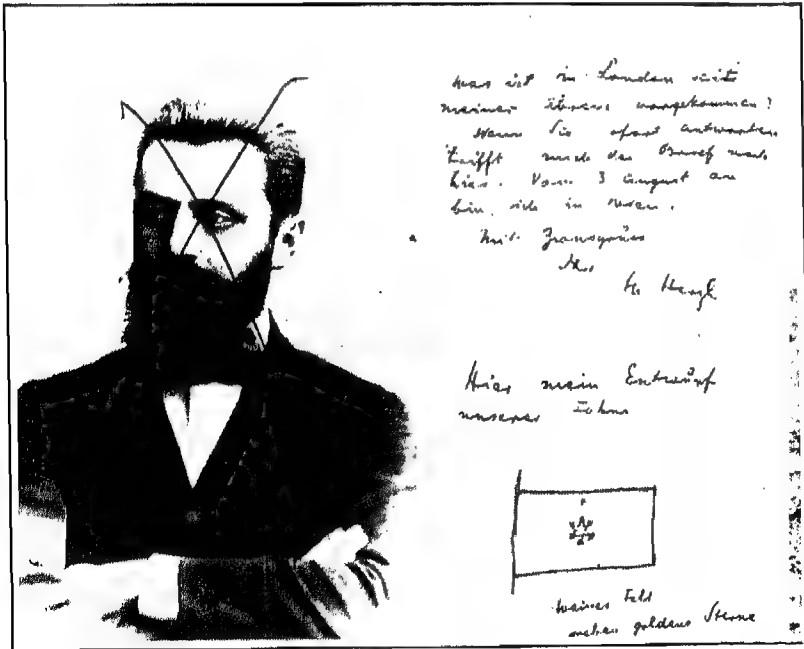 in London seit
meiner vorgekommen?
Wenn Sie antworten
trifft mich der Brief noch
hier. Vom 3 August an
bin ich in
Mit Zionsgruss
Ihr
Th Herzl
Hier mein Entwurf
unserer Fahne
weisses Feld
sieben goldene Sterne